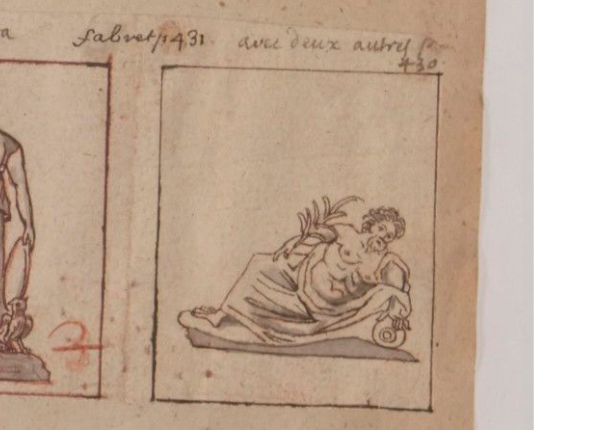 a fabret p 431 avec deux autres p
430